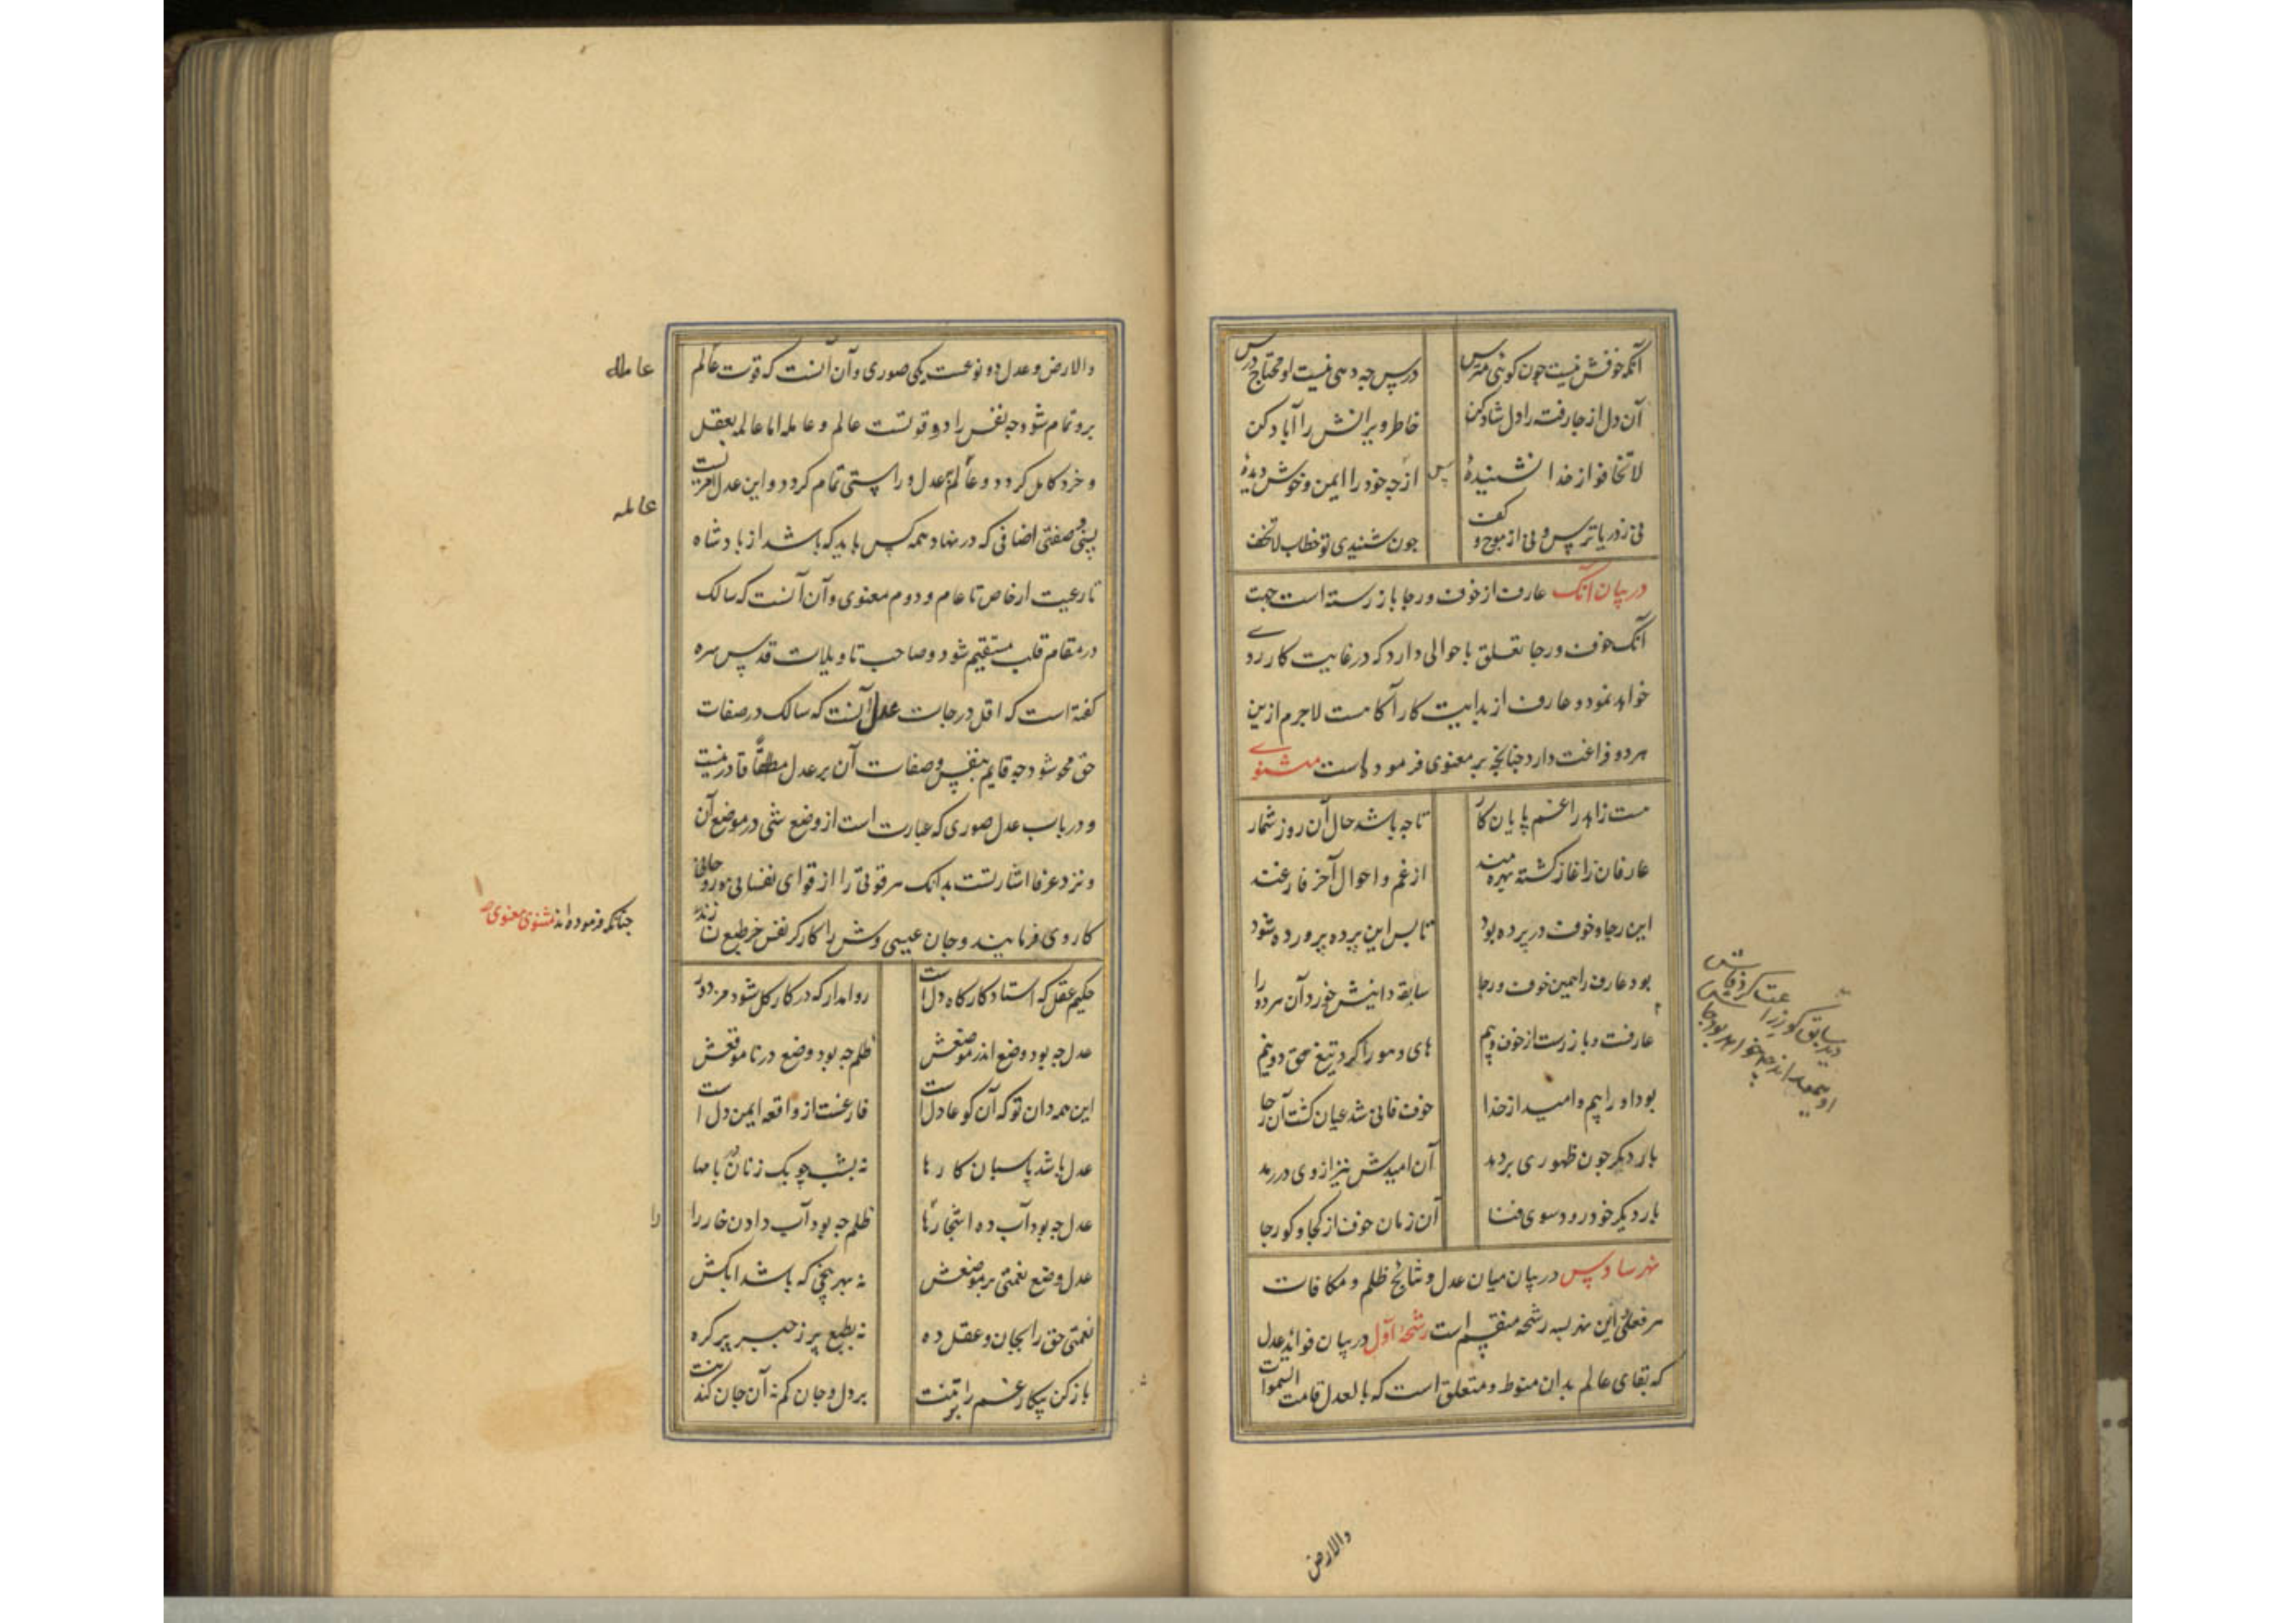 آنکه خوفش نیست چون کوئی مترس درس چه دهی نیست او محتاج درس
آن دل از جا رفته را دل شاد کن خاطر ویرانش را آباد کن
لا تخافو از خدا نشنیدهٔ پس از چه خود را ایمن و خوش دیدهٔ
نی ز دریا ترس و نی از موج و کف چون شنیدی تو خطاب لا تخف
در بیان آنک عارف از خوف و رجا باز رسته است جهت
آنک خوف و رجا تعلق باحوالی دارد که در غایت کار روی
خواهد نمود و عارف از بدایت کار آگاهست لاجرم ازین
هر دو فراغت دارد چنانچه پیر معنوی فرموده است مثنوی
هست زاهد را غم پایان کار تا چه باشد حال آن روز شمار
عارفان زاغاز کشته هوشمند از غم و احوال آخر فارغند
این رجا و خوف در پرده بود تا بس این پرده پرورده شود
بود عارف را همین خوف و رجا سابقه دانیش خورد آن هر دو را
عارفست و باز رست از خوف و بیم های و هو را کرد تیغ حق دو نیم
بود او را بیم و امید از خدا خوف فانی شد عیان کشت آن رجا
بار دیکر چون ظهوری بر دمد آن امیدش نیز از وی در رمد
بار دیکر خود رود سوی فنا آن زمان خوف از کجا و کو رجا
نهر سادس در بیان میان عدل و نتایج ظلم و مکافات
هر فعلی این نهر بسه رشحه منقسم است رشحهٔ اول در بیان فواید عدل
که بقای عالم بدان منوط و متعلق است که بالعدل قامت السموات
والارض
والارض و عدل دو نوعست یکی صوری و آن آنست که قوت عالم
عامله
برو تمام شود چه نفس را دو قوتست عالمه و عامله اما عالمه بعقل
و خرد کامل کردد و عالمه بعدل و راستی تمام کردد و این عدل امریست
عامله
نسبی و صفتی اضافی که در نهاد همه کس باید که باشد از بادشاه
تا رعیت از خاص تا عام و دوم معنوی و آن آنست که سالک
در مقام قلب مستقیم شود و صاحب تاویلات قدس سره
کفته است که اقل درجات عدل آنست که سالک در صفات
حق محو شود چه قایم بنفس و صفات آن بر عدل مطلقا قادر نیست
و در باب عدل صوری که عبارت است از وضع شئی در موضع آن
و نزد عرفا اشارتست بدانک هر قوتی را از قوای نفسانی و روحانی
کار وی فرمایند و جان عیسی وش را کارکر نفس خر طبع نسازند
چنانکه فرموده اند مثنوی معنوی
حکیم عقل که استاد کارکاه دل است روا مدار که در کار کل شود مزدور
عدل چه بود وضع اندر موضعش ظلم چه بود وضع در ناموقعش
این همه دان تو که آن کو عادل است فارغست از واقعه ایمن دل است
عدل باشد پاسبان کارها نه بشب چوبک زنان بر بامها
عدل چه بود آب ده اشجار را ظلم چه بود آب دادن خار را
عدل وضع نعمتی بر موضعش نه بهر بیخی که باشد آبکش
نعمتی حق را بجان و عقل ده نه بطبع پر زحیر پر کره
بار کن پیکار غم را بر تنت بر دل و جان کم نه آن جان کندنت